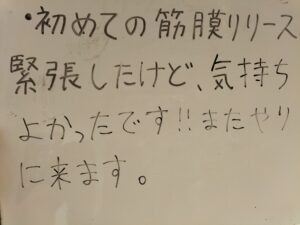 ・初めての筋膜リリース
緊張したけど、気持ち
よかったです!!またやり
に来ます。